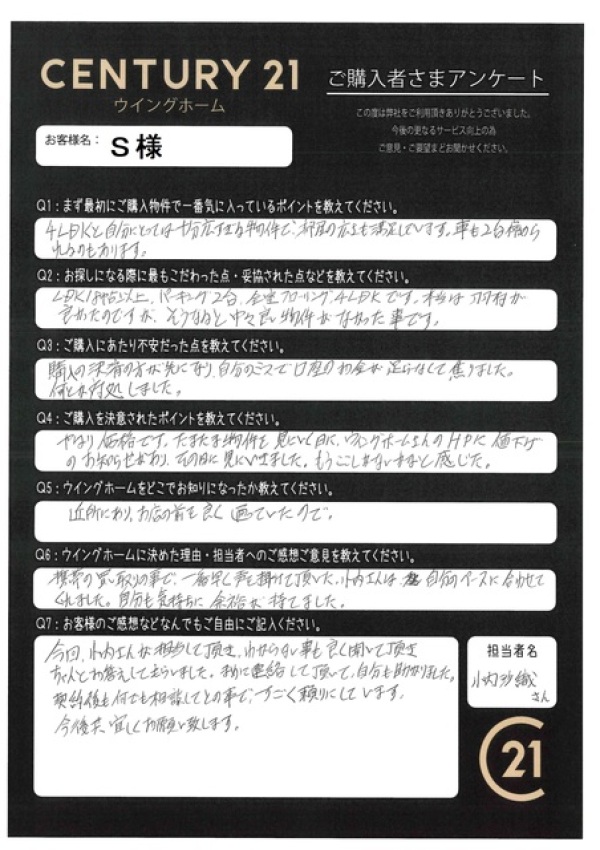 CENTURY 21
ウイングホーム
ご購入者さまアンケート
この度は弊社をご利用頂きありがとうございました。
今後の更なるサービス向上の為
ご意見・ご要望などお聞かせください。
お客様名： S様
Q1：まず最初にご購入物件で一番気に入っているポイントを教えてください。
4LDKと自分にとっては十分広すぎる物件で、部屋の広さも満足しています。車も2台停めら
れるのもあります。
Q2：お探しになる際に最もこだわった点・妥協された点などを教えてください。
LDK18帖以上、パーキング2台、全室フローリング、4LDKです。本当は
良かったのですが、そうなると中々良い物件がなかった事です。
Q3：ご購入にあたり不安だった点を教えてください。
購入の決済の方が先になり、自分のミスで口座のお金が足らなくて焦りました。
何とか対処しました。
Q4：ご購入を決意されたポイントを教えてください。
やはり価格です。たまたま物件を見にいく日に、ウイングホームさんのHPに値下げ
のお知らせがあり、その日に見にいきました。もうここしかないかなと感じた。
Q5：ウイングホームをどこでお知りになったか教えてください。
近所にあり、お店の前も良く通っていたので。
Q6：ウイングホームに決めた理由・担当者へのご感想ご意見を教えてください。
携帯の買い取りの事で、一番早く声を掛けて頂いた。小内さんは 自分のペースに合わせて
くれました。自分も気持ちに余裕が持てました。
Q7：お客様のご感想などなんでもご自由にご記入ください。
今回、小内さんが担当して頂き、わからない事も良く聞いて頂き
ちゃんとお答えしてもらいました。まめに連絡して頂いて、自分も助かりました。
契約後も何でも相談してとの事で、すごく頼りにしています。
今後共、宜しくお願い致します。
担当者名
小内沙織
さん
C21